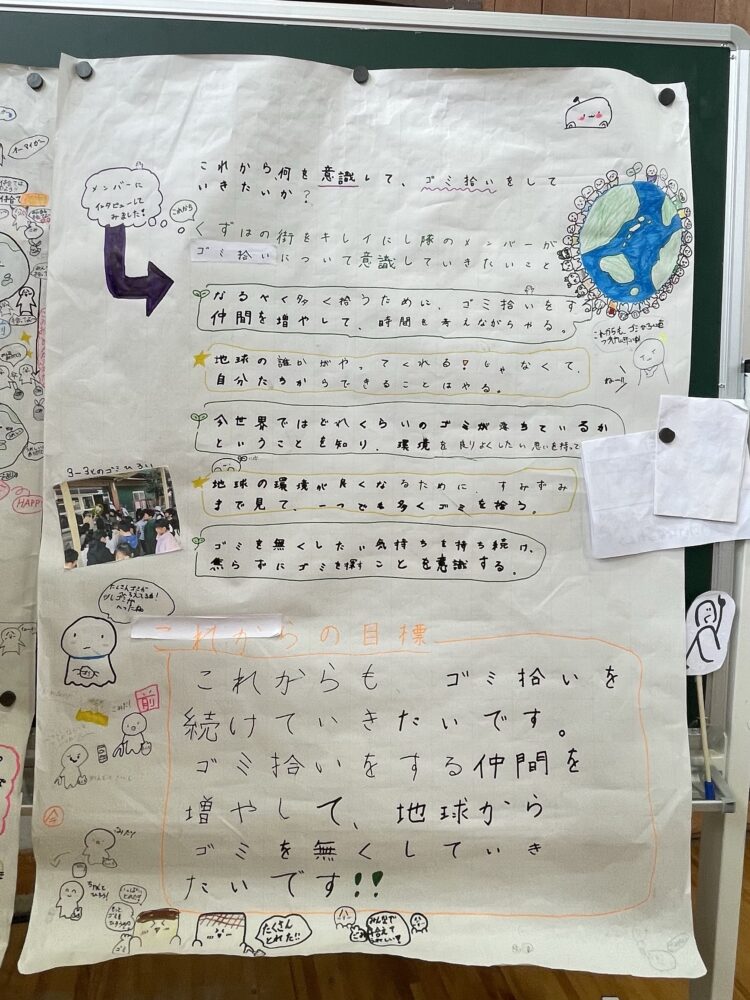 これから何を意識して、ゴミ拾いをして
いきたいか？
メンバーに
インタビューして
みました！
これから
くずはの街をキレイにし隊のメンバーが
ゴミ拾いについて意識していきたいこと
なるべく多く拾うために、ゴミ拾いをす
仲間を増やして、時間も考えながらやる。
地球の誰かがやってくれる！じゃなくて、
自分たちからできることはやる。
今世界ではどれくらいのゴミが落ちているか
ということを知り、環境を良りよくしたい思いを持って
地球の環境が良くなるために、すみずみ
まで見て、一つでも多くゴミを拾う。
ゴミを無くしたい気持ちを持ち続け、
焦らずにゴミを探すことを意識する。
ねー!!
3-3とのゴミひろい
HAPP
たくさんゴミが
へったね
これからの目標
これからも、ゴミ拾いを
続けていきたいです。
ゴミ拾いをする仲間を
増やして、地球から
ゴミを無くしていき
たいです!!
前
今
ゴミ
たくさん
とれた!!
みんなで